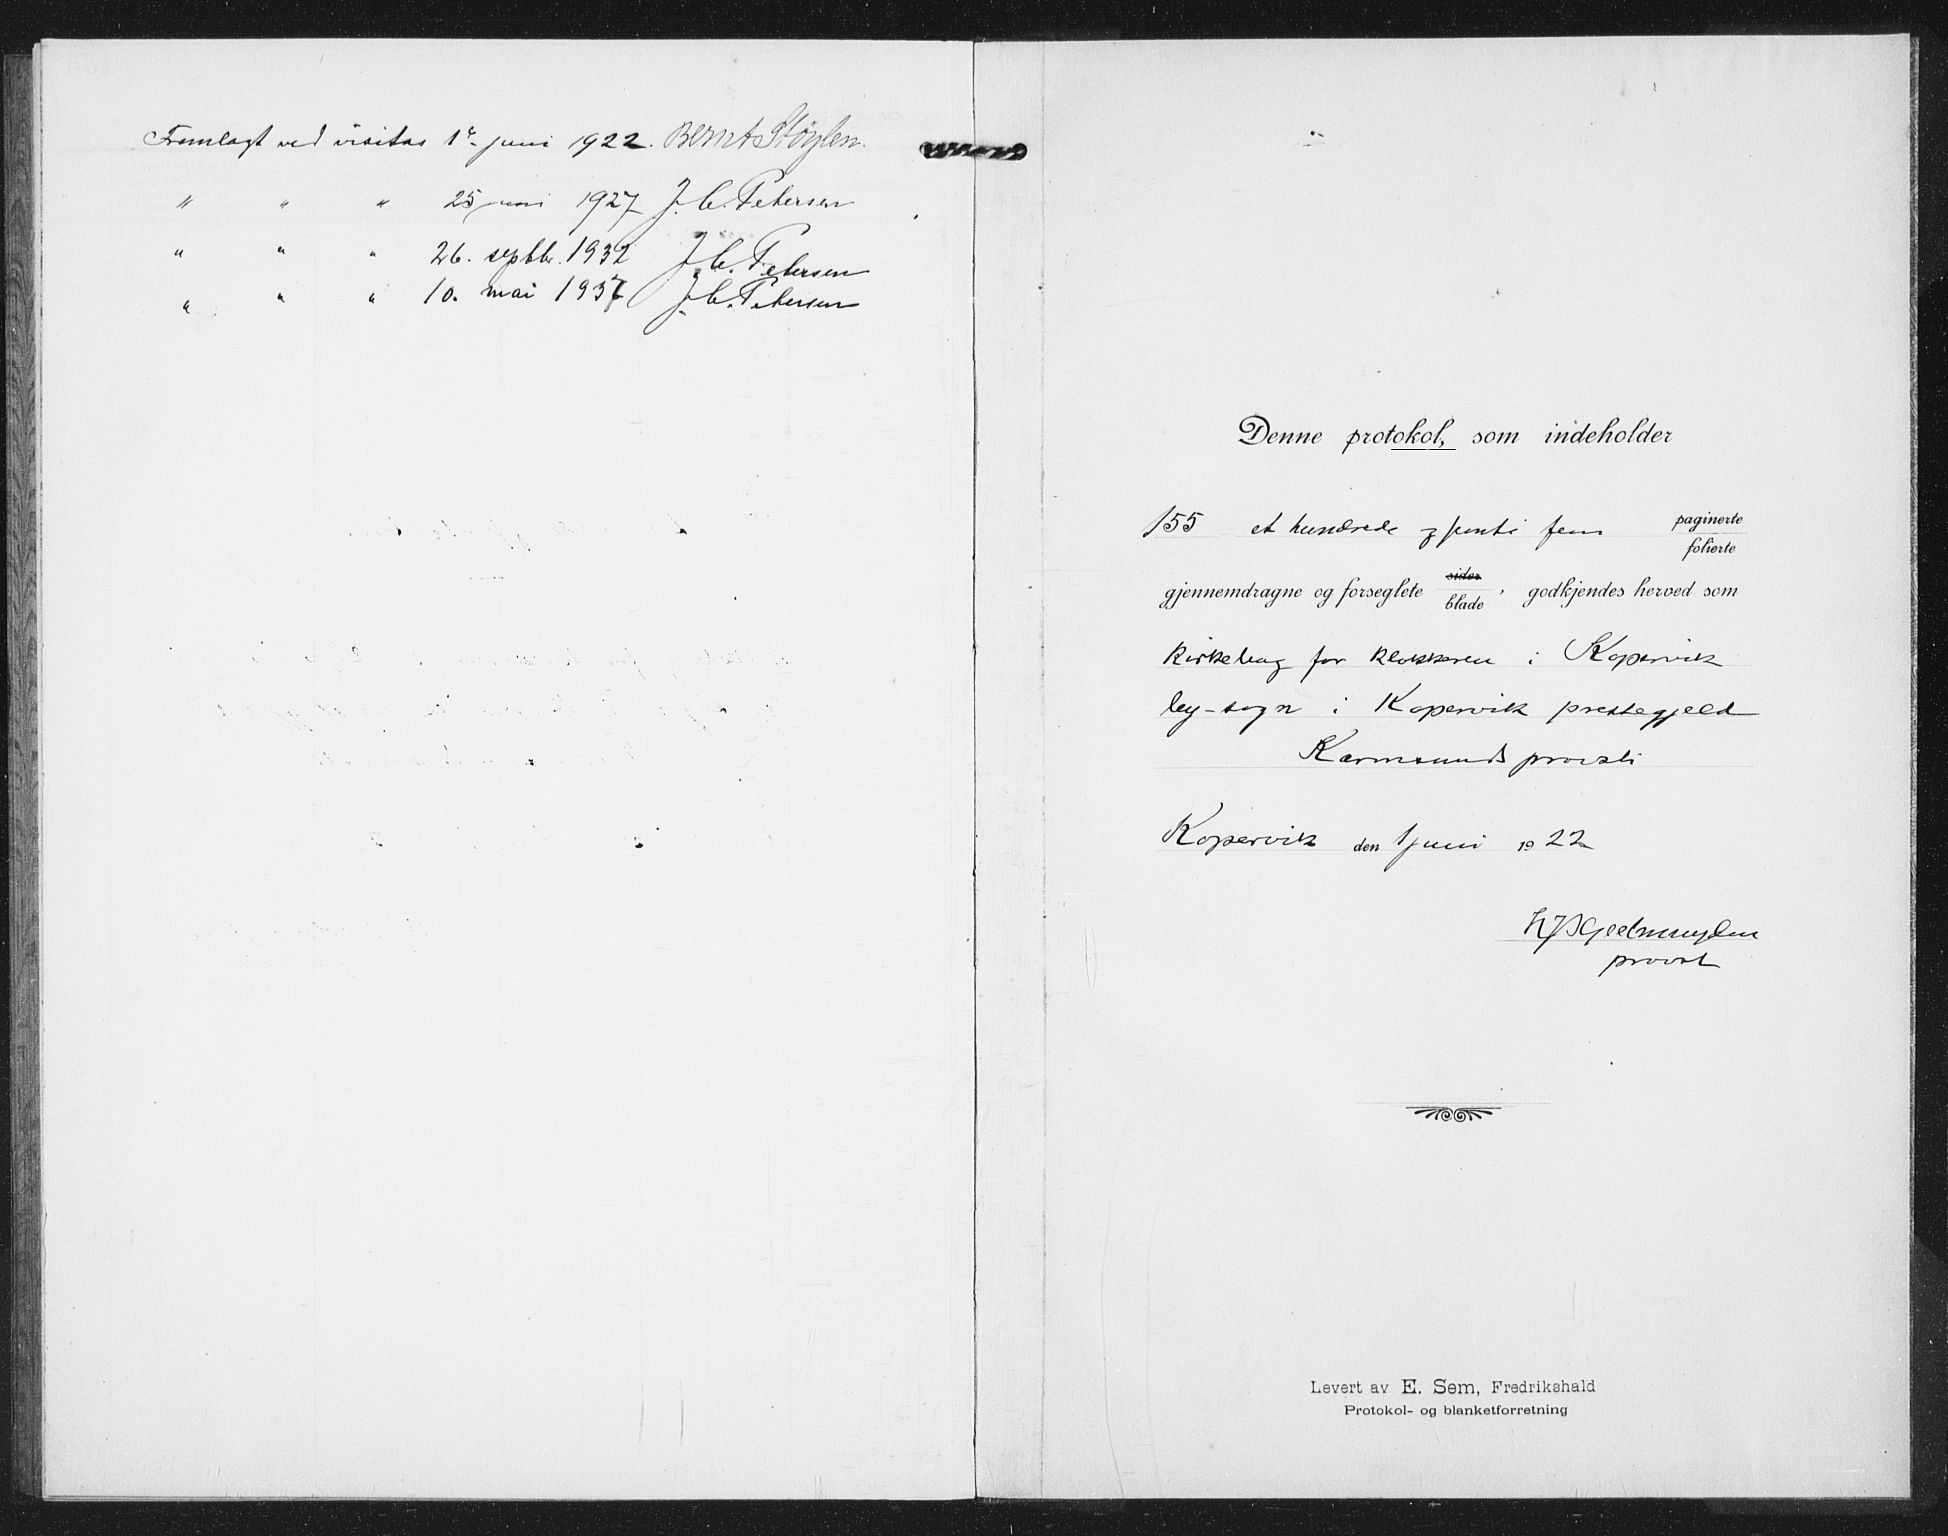 Fremlagt ved visitas 1ste juni 1922. Bernt Støylen.
" " " 25 juni 1927 J. C. Petersen
" " " 26. septbr. 1932 J. C. Petersen
" " " 10. mai 1937 J. C. Petersen
Denne protokol, som indeholder
155 et hundrede og femti fem paginerte
folierte
gjennemdragne og forseglete sider blade, godkjendes herved som
kirkebog for klokkeren i Kopervik
by-sogn i Kopervik prestegjeld
Karmsunds provsti
Kopervik den 1 juni 1922
Geelmuyden
provst
Levert av E. Sem, Fredrikshald
Protokol- og blanketforretning